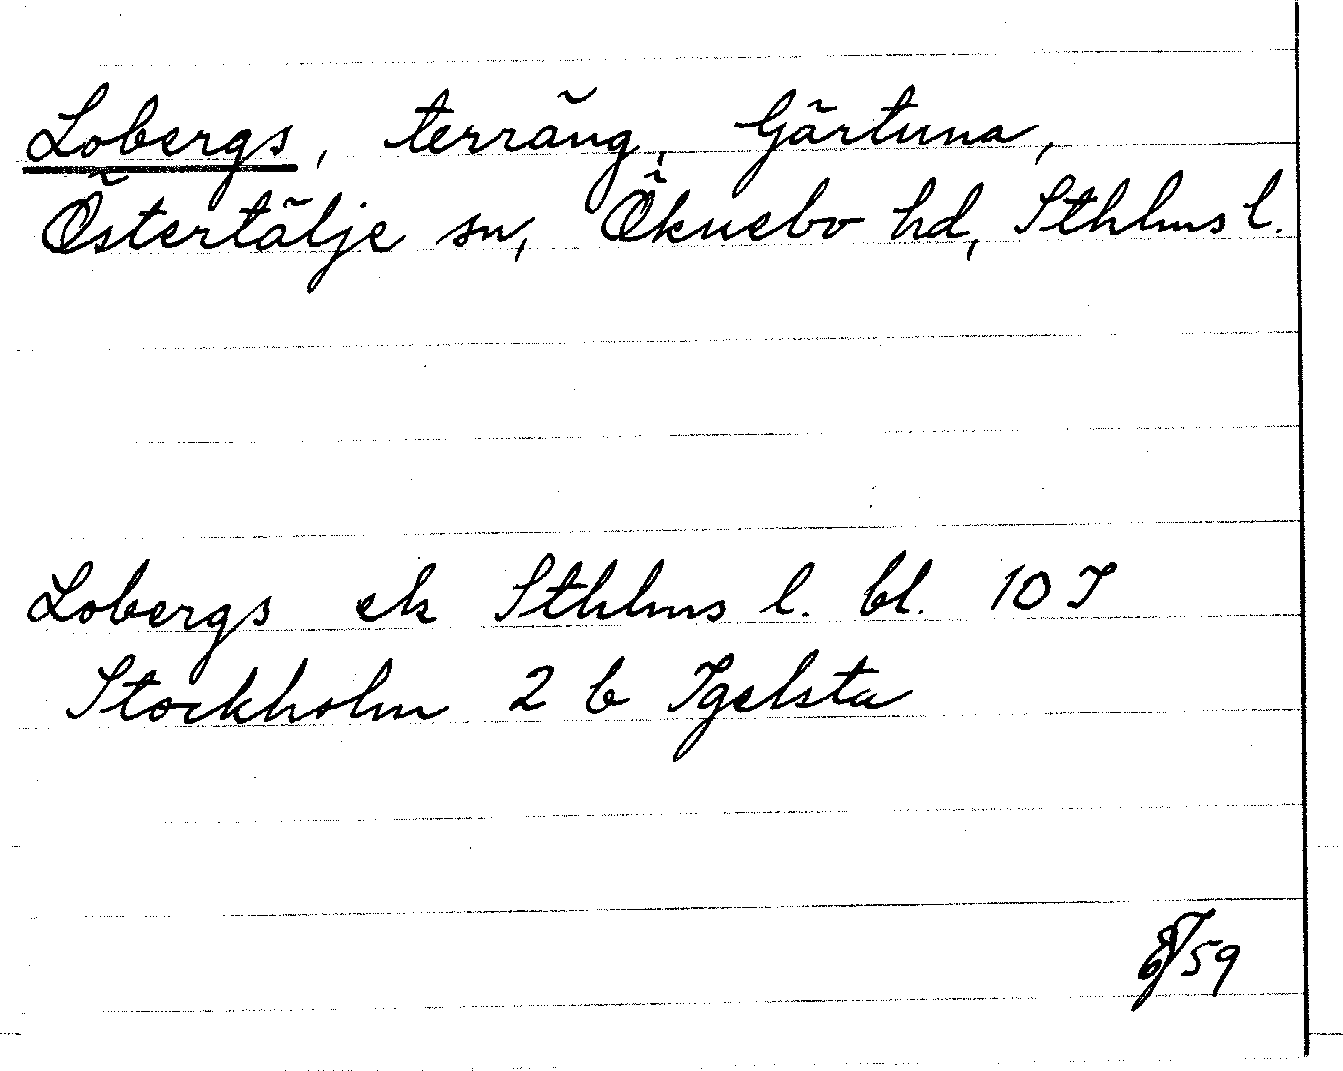 Lobergs, terräng, Gärtuna,
Östertälje sn, Öknebo hd, Sthlms l.
Lobergs ek Sthlms l. bl. 10 I
Stockholm 2 b Igelsta
59